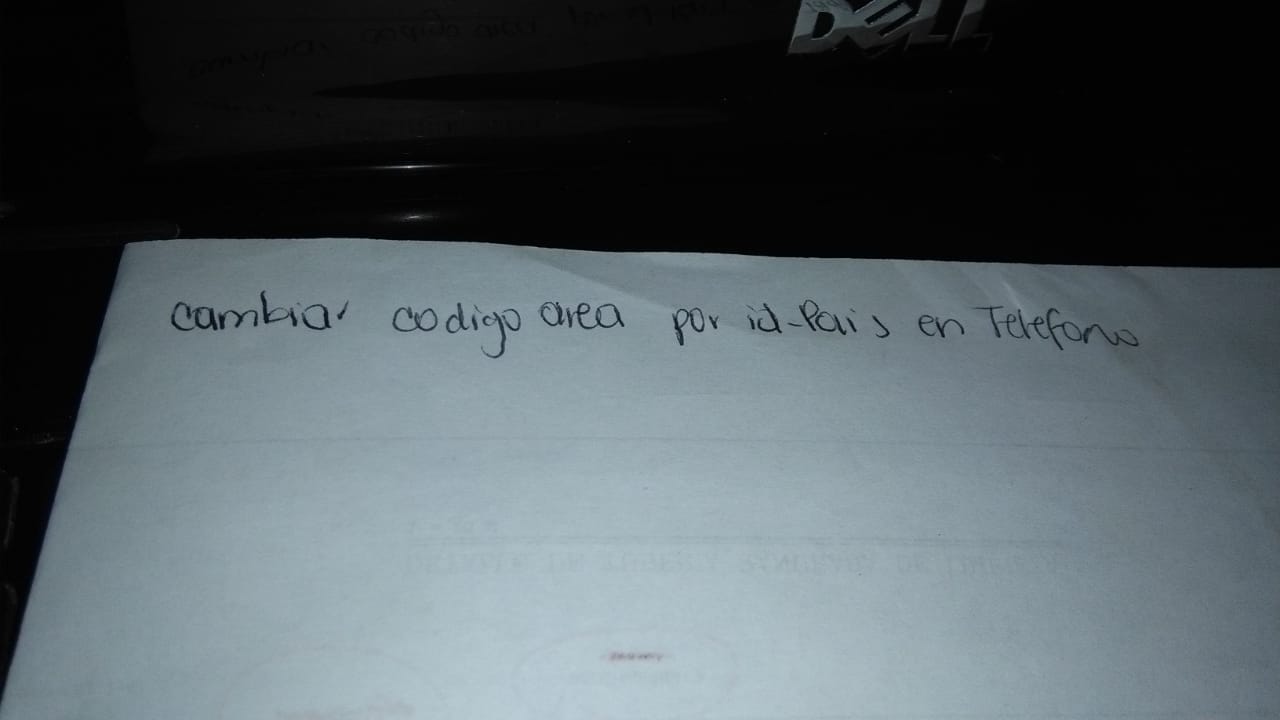 DELL
cambiar codigo area por id-Pais en Telefono